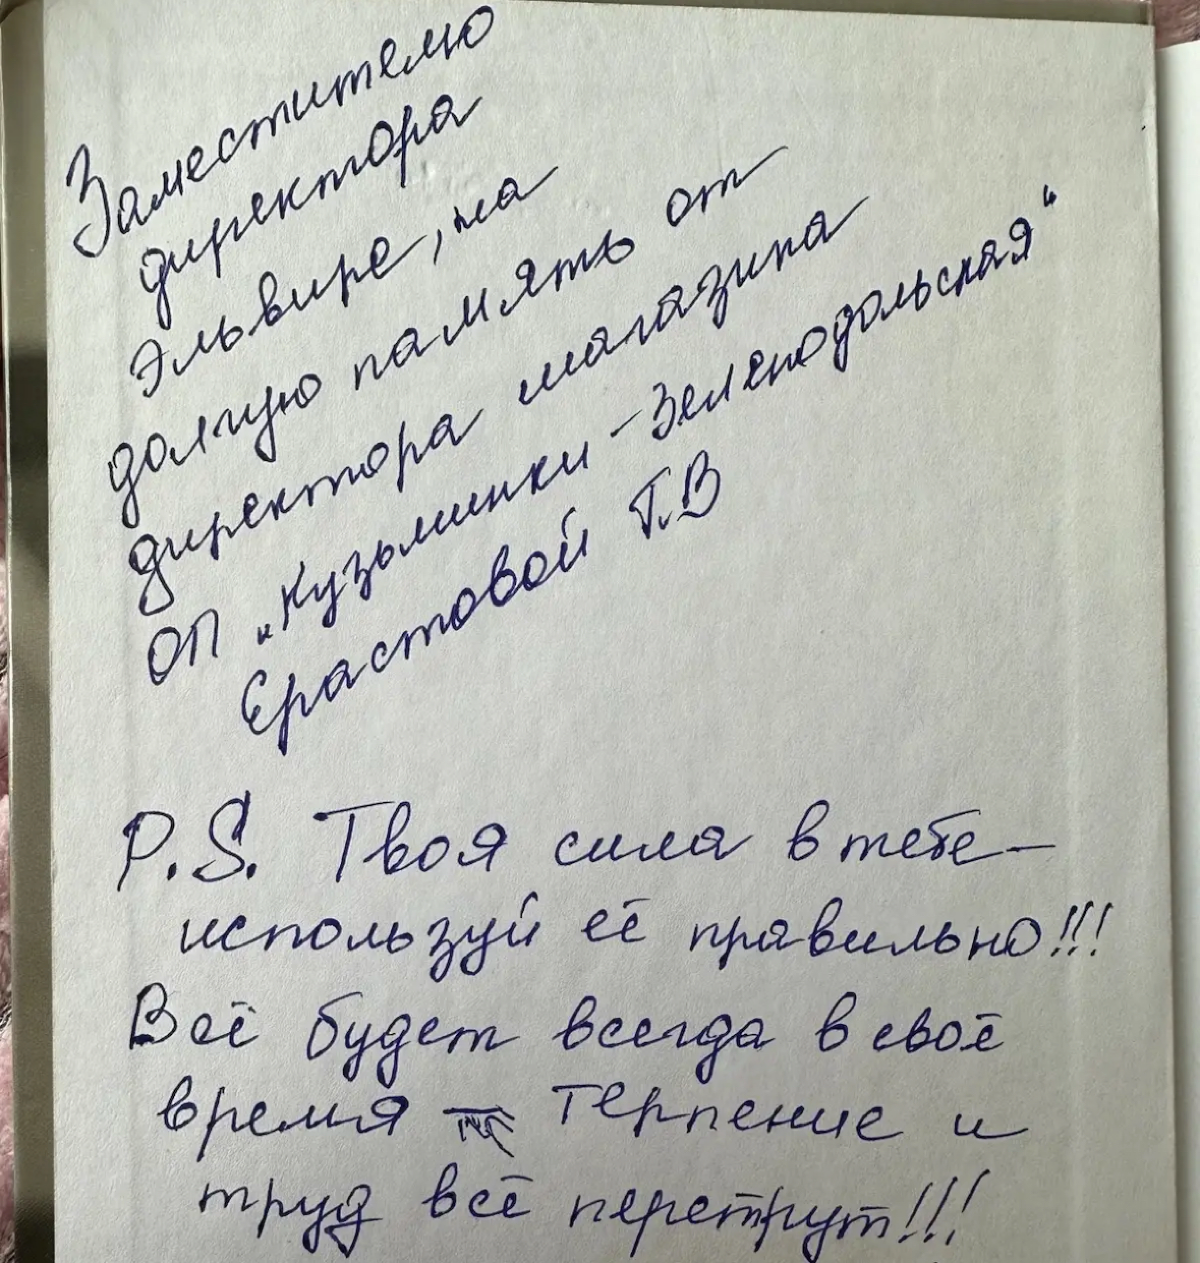 Заместителю
директора
Эльвире, на
долгую память от
директора магазина
ОП „Кузьминки - Зеленодольская“
Ерастовой Т.В
P.S. Твоя сила в тебе –
используй её правильно!!!
Всё будет всегда в своё
время Терпение и
труд всё перетрут!!!